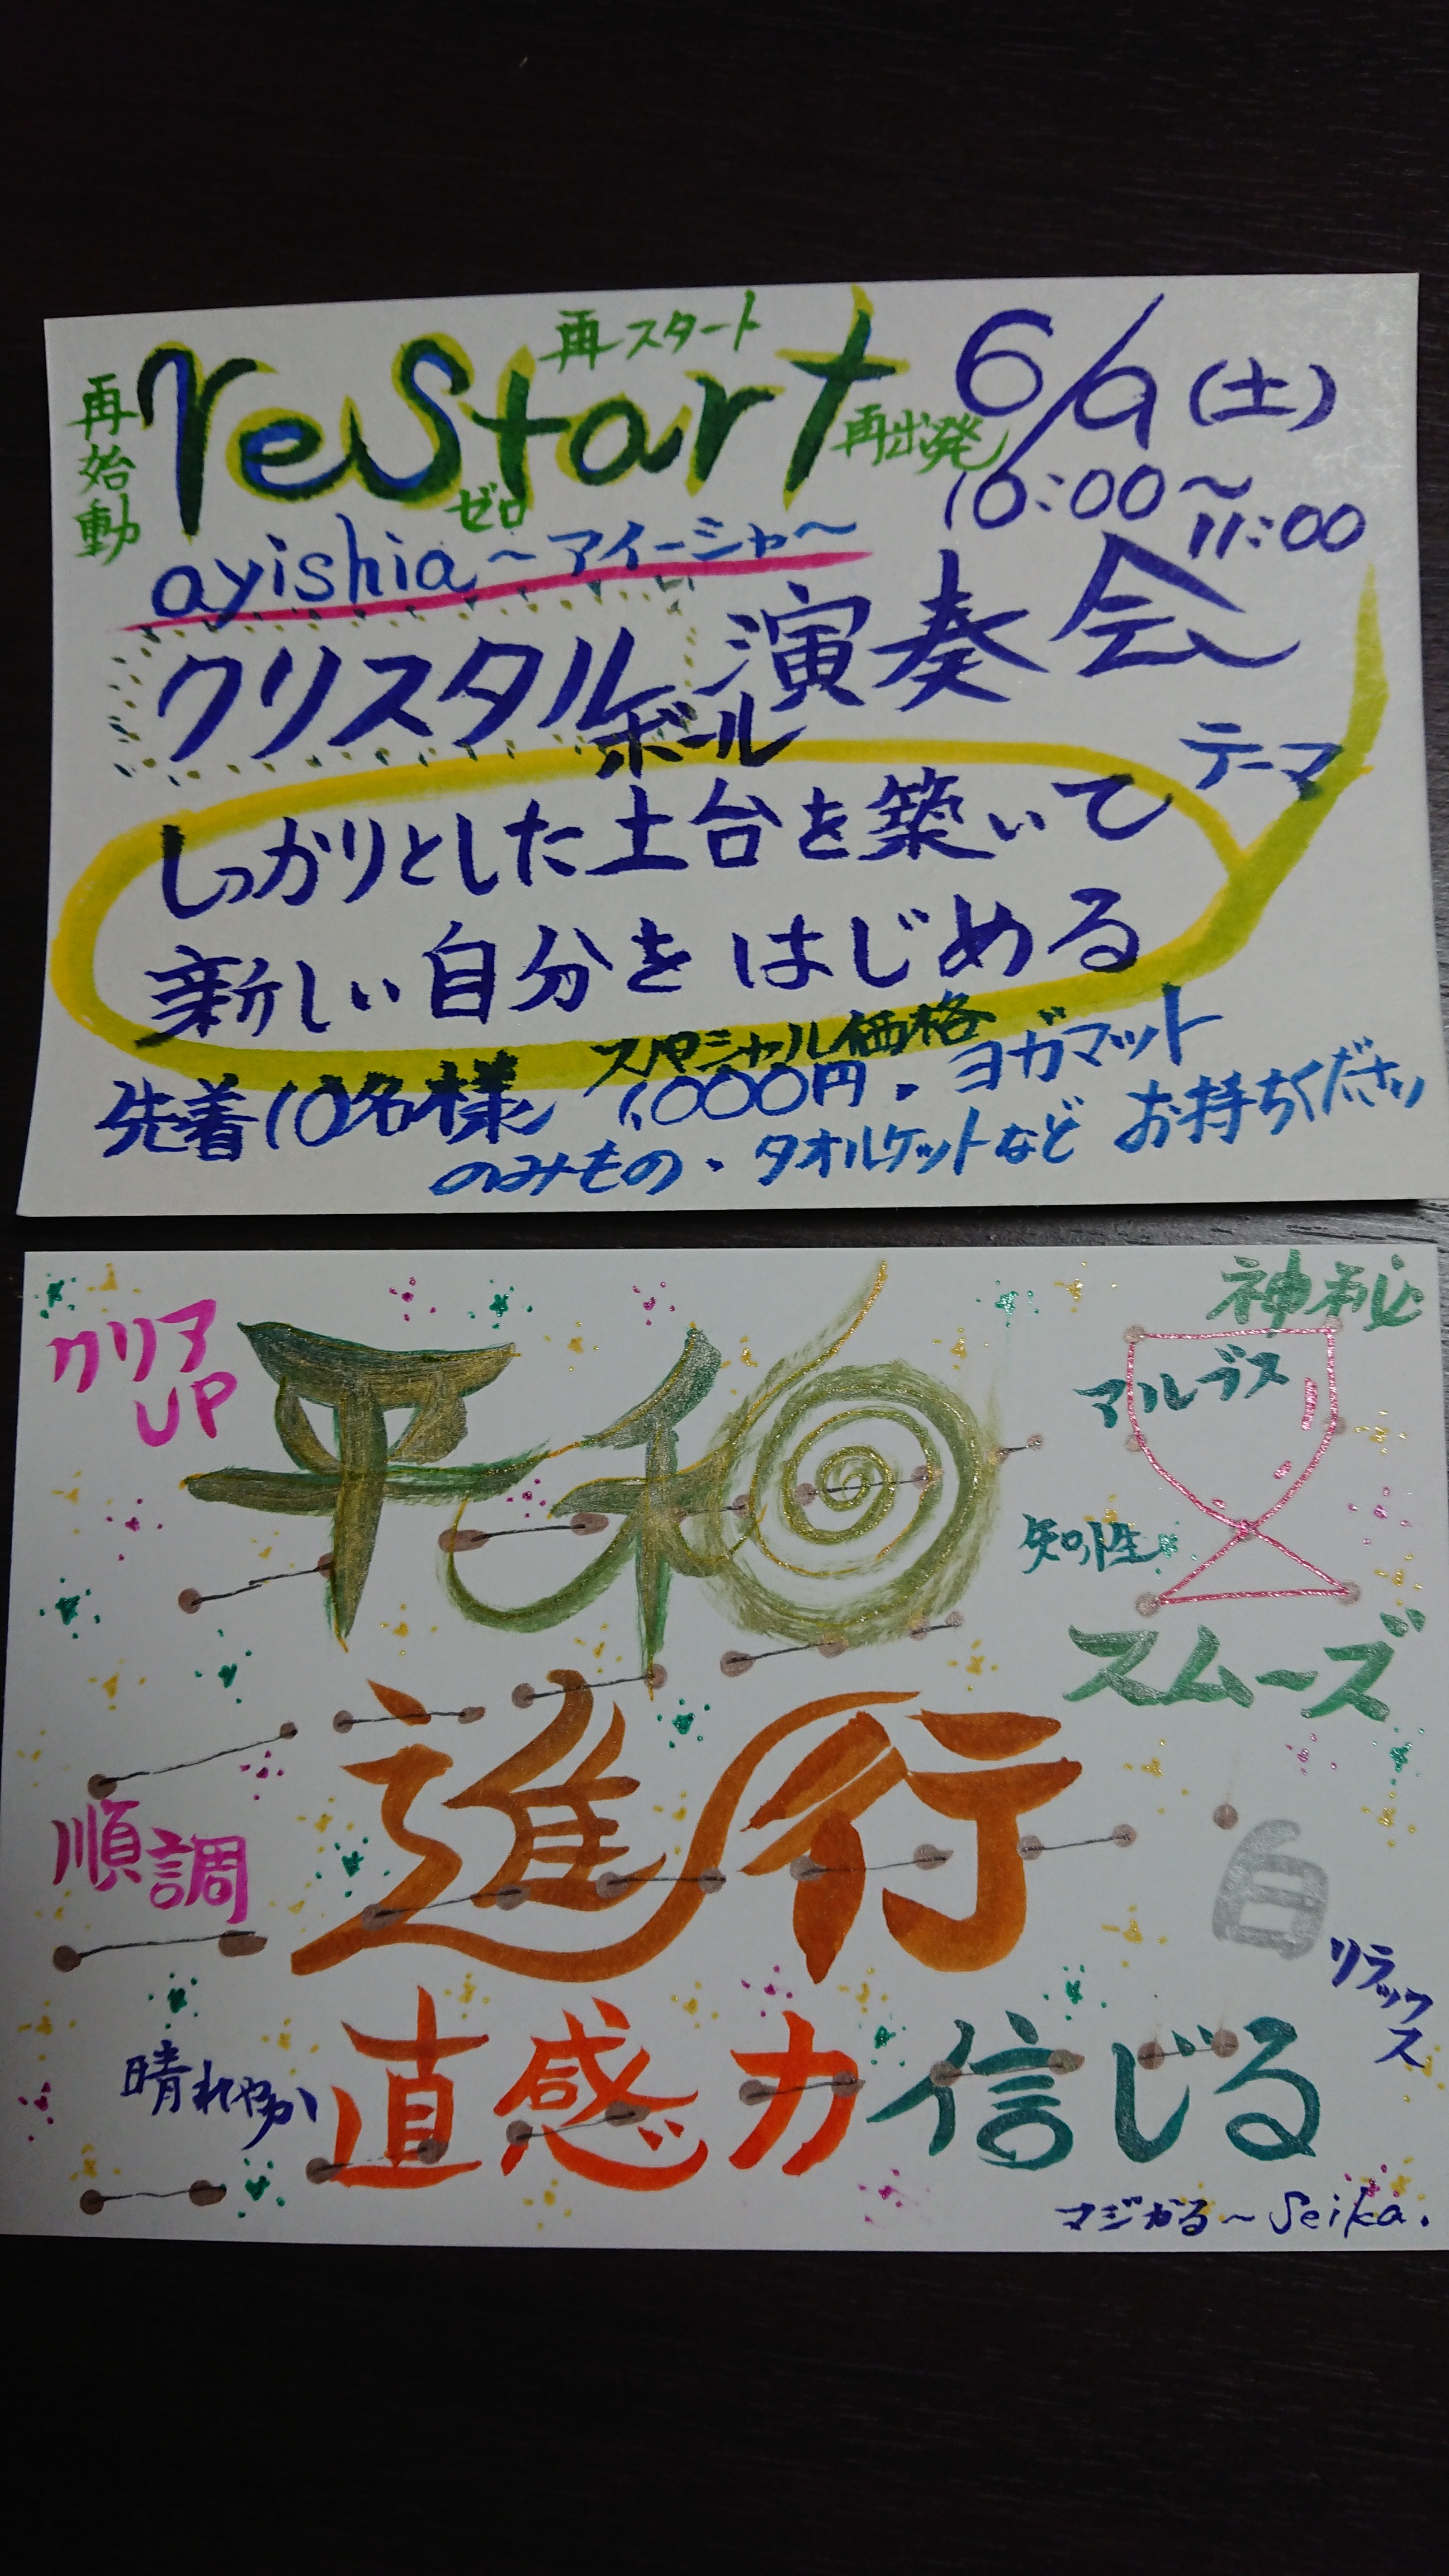 再スタート
再始動
reStart
再出発
ゼロ
6/9(土)
10:00〜11:00
ayishia〜アイーシャ〜
クリスタルボール演奏会
テーマ
しっかりとした土台を築いて
新しい自分をはじめる
先着10名様 スペシャル価格 1,000円・ヨガマット
のみもの・タオルケットなど お持ちください
クリアUP
平和
神秘
アルプス
知性
スムーズ
進行
順調
白
リラックス
晴れやか
直感力信じる
マジかる〜Seika.